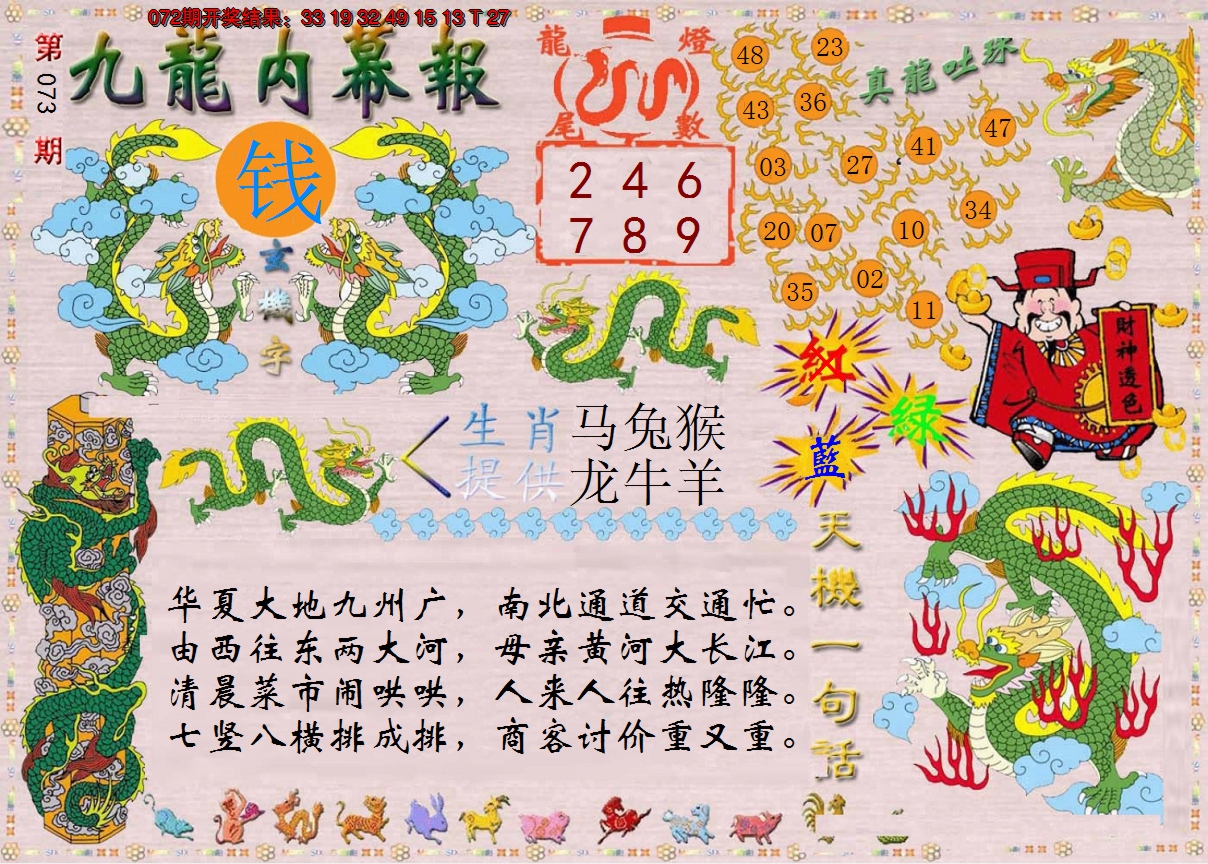 072期开奖结果：33 19 32 49 15 13 T 27
第073期
九龍内幕報
钱
玄機字
龍燈
尾數
2 4 6
7 8 9
真龍吐珠
48
23
43
36
03
27
41
47
20
07
10
34
35
02
11
財神透色
紅
綠
藍
生肖 马兔猴
提供 龙牛羊
天機一句話
华夏大地九州广，南北通道交通忙。
由西往东两大河，母亲黄河大长江。
清晨菜市闹哄哄，人来人往热隆隆。
七竖八横排成排，商客讨价重又重。